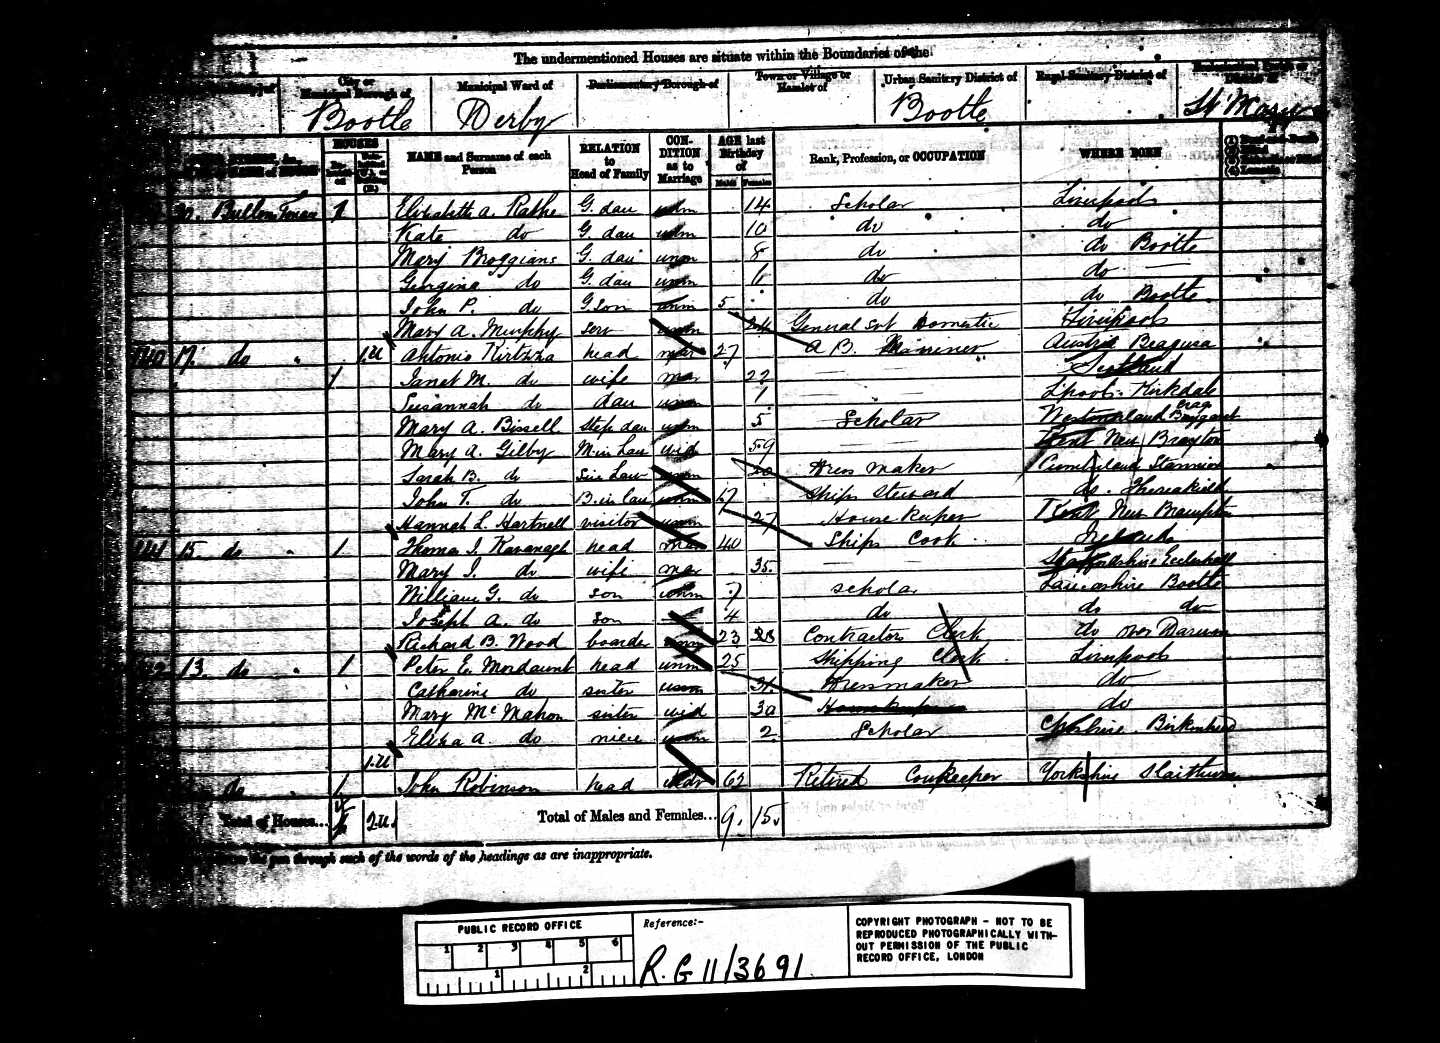 The undermentioned Houses are situate within the Boundaries of the
City or Municipal Borough of Bootle
Municipal Ward of Derby
Parliamentary Borough of
Town or Village or Hamlet of
Urban Sanitary District of Bootle
Rural Sanitary District of
St Mary
HOUSES
NAME and Surname of each Person
RELATION to Head of Family
CONDITION as to Marriage
AGE last Birthday of
Males Females
Rank, Profession, or OCCUPATION
WHERE BORN
1 Elizabeth A. G. dau unm 14 Scholar Liverpool
Kate do G. dau unm 10 do do
Mary G. dau unm 8 do do Bootle
Georgina do G. dau unm 6 do do
John P. do G. son unm 5 do do Bootle
Mary A. Murphy serv unm 24 General Domestic Liverpool
140 17. do 1.U Antonio head mar 27 A B. Mariner Austria
1 Janet M. do wife mar 22 Scotland
Susannah do dau unm 1 Lpool. Kirkdale
Mary A. Bissell step dau unm 5 Scholar Westmorland
Mary A. Gilby M in Law wid 59 Kent New
Sarah B. do Sis Law unm 20 Dress maker Cumberland
John T. do B. in law unm 17 Ships Steward do.
Hannah L. Hartnell visitor unm 27 House keeper Kent New Brompton
141 15 do 1 Thomas J. Kavanagh head mar 40 Ships Cook Ireland
Mary J. do wife mar 35 Staffordshire Eccleshall
William G. do son unm 7 scholar Lancashire Bootle
Joseph A. do son 4 do do do
Richard B. Wood boarder unm 23 Contractors Clerk do over Darwen
142 13 do 1 Peter E. Mordaunt head unm 25 Shipping Clerk Liverpool
Catharine do sister unm 31 Dressmaker do
Mary McMahon sister wid 30 Housekeeper do
Eliza A. do niece unm 2 Scholar Cheshire Birkenhead
1.U
do 1 John Robinson head 62 Retired Cowkeeper Yorkshire
Total of Houses... 4 2.U. Total of Males and Females... 9. 15.
the pen through such of the words of the headings as are inappropriate.
PUBLIC RECORD OFFICE
1 2 3 4 5 6
1 2
Reference:-
R.G 11/3691
COPYRIGHT PHOTOGRAPH - NOT TO BE
REPRODUCED PHOTOGRAPHICALLY WITH-
OUT PERMISSION OF THE PUBLIC
RECORD OFFICE, LONDON